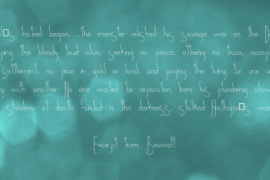 hatred began, the monster relished his savage war on the
the bloody feud alive, seeking no peace, offering no truce,
settlement, no price in gold or land, and paying the living for one
with another. No one waited for reparation from his plundering claws
shadow of death hunted in the darkness, stalked
Excerpt from, Beowulf